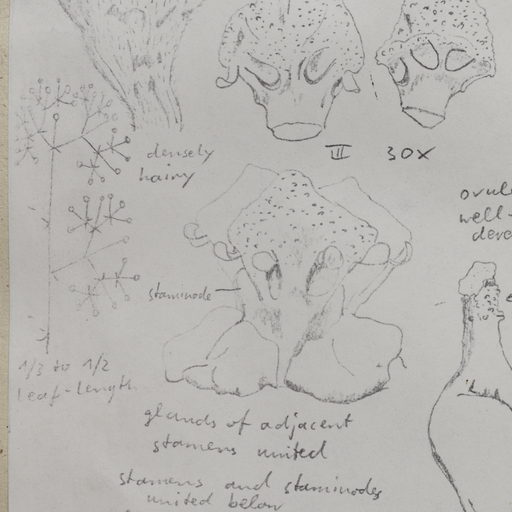 densely
hairy
III 30X
well-
staminode
1/3 to 1/2
leaf-length
glands of adjacent
stamens united
stamens and staminodes
united below